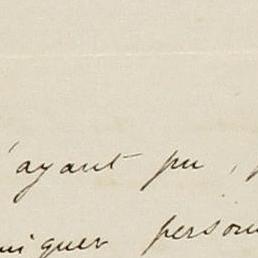 'ayant pu,
niquer person